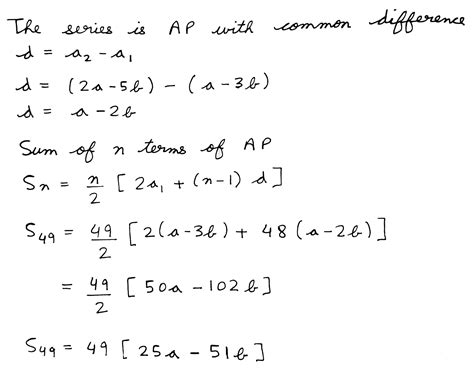 The series is AP with common difference
d = a₂ - a₁
d = (2a - 5b) - (a - 3b)
d = a - 2b
Sum of n terms of AP
Sn = n/2 [ 2a₁ + (n-1) d ]
S₄₉ = 49/2 [ 2(a - 3b) + 48 (a - 2b) ]
= 49/2 [ 50a - 102b ]
S₄₉ = 49 [ 25a - 51b ]